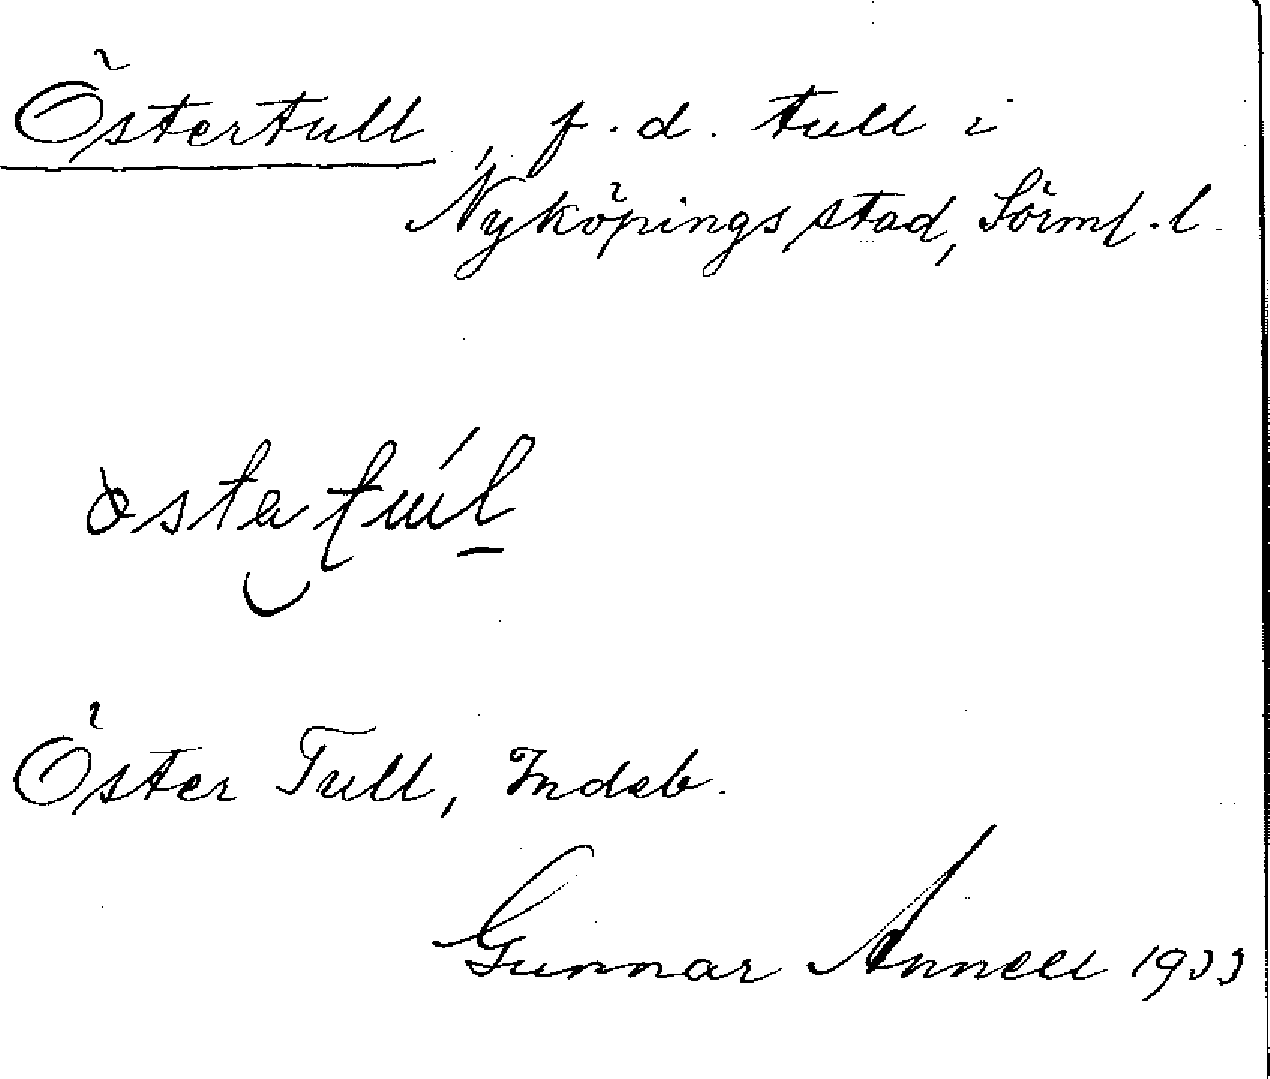 Östertull, f.d. tull i
Nyköpings stad, Sörml. l.
Öster Tull, Indeb.
Gunnar Annell 1933